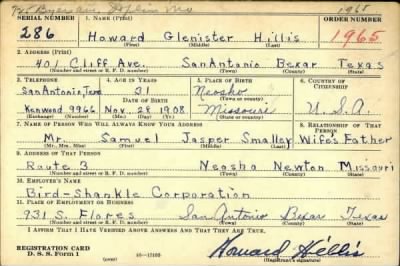 Byers ave, Joplin Mo 1965
SERIAL NUMBER 1. NAME (Print) ORDER NUMBER
286 Howard Glenister Hillis 1965
(First) (Middle) (Last)
2. ADDRESS (Print)
401 Cliff Ave. San Antonio Bexar Texas
(Number and street or R. F. D. number) (Town) (County) (State)
3. TELEPHONE 4. AGE IN YEARS 5. PLACE OF BIRTH 6. COUNTRY OF CITIZENSHIP
San Antonio, Texas 31 Neosho
DATE OF BIRTH (Town or county)
Kenwood 9966 Nov. 28 1908 Missouri U.S.A.
(Exchange) (Number) (Mo.) (Day) (Yr.) (State or country)
7. NAME OF PERSON WHO WILL ALWAYS KNOW YOUR ADDRESS 8. RELATIONSHIP OF THAT PERSON
Mr. Samuel Jasper Smalley Wife's Father
(Mr., Mrs., Miss) (First) (Middle) (Last)
9. ADDRESS OF THAT PERSON
Route 3 Neosho Newton Missouri
(Number and street or R. F. D. number) (Town) (County) (State)
10. EMPLOYER'S NAME
Bird-Shankle Corporation
11. PLACE OF EMPLOYMENT OR BUSINESS
731 S. Flores San Antonio Bexar Texas
(Number and street or R. F. D. number) (Town) (County) (State)
I AFFIRM THAT I HAVE VERIFIED ABOVE ANSWERS AND THAT THEY ARE TRUE.
REGISTRATION CARD
D. S. S. Form 1 16-17105 Howard Hillis
(Registrant's signature)